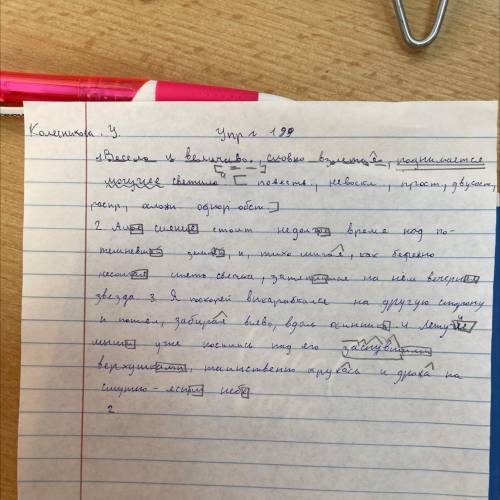 Колесникова. У. Упр № 199
1. Весело и величаво, словно взлетая, поднимается
могучее светило [повеств., невоскл., прост, двусост,
распр, ослож однор обст.]
2 Алое сияние стоит недолгое время над по-
темневшей землей, и, тихо мигая, как бережно
несомая свеча, на нем вечерняя
звезда 3. Я поскорей выкарабкался на другую сторону
и пошел, забирая влево, вдоль осинника. 4 Летучие
мыши уже носились над его заснувшими
верхушками, таинственно кружась и дрожа на
смутно-ясном небе